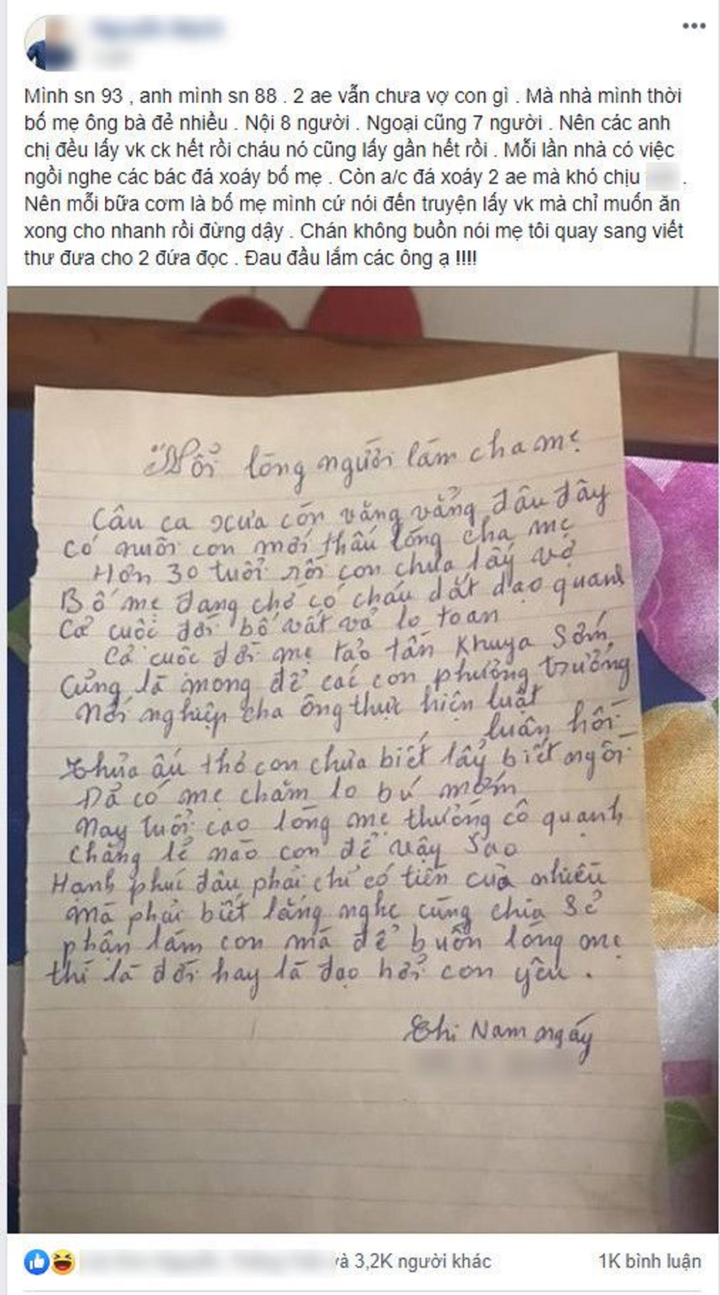 Mình sn 93 , anh mình sn 88 . 2 ae vẫn chưa vợ con gì . Mà nhà mình thời
bố mẹ ông bà đẻ nhiều . Nội 8 người . Ngoại cũng 7 người . Nên các anh
chị đều lấy vk ck hết rồi cháu nó cũng lấy gần hết rồi . Mỗi lần nhà có việc
ngồi nghe các bác đá xoáy bố mẹ . Còn a/c đá xoáy 2 ae mà khó chịu .
Nên mỗi bữa cơm là bố mẹ mình cứ nói đến truyện lấy vk mà chỉ muốn ăn
xong cho nhanh rồi đừng dậy . Chán không buồn nói mẹ tôi quay sang viết
thư đưa cho 2 đứa đọc . Đau đầu lắm các ông ạ !!!!
Nổi lòng người làm cha mẹ
Câu ca xưa còn văng vẳng đâu đây
Có nuôi con mới thấu lòng cha mẹ
Hơn 30 tuổi rồi con chưa lấy vợ
Bố mẹ đang chờ có cháu dắt dạo quanh
Cả cuộc đời bố vất vả lo toan
Cả cuộc đời mẹ tảo tần khuya sớm
Cũng là mong để các con phương trưởng
Nối nghiệp cha ông thực hiện luật
luân hồi
Thủa ấu thơ con chưa biết lẩy biết ngồi
Đã có mẹ chăm lo bú mớm
Nay tuổi cao lòng mẹ thường cô quạnh
Chẳng lẽ nào con để vậy sao
Hạnh phúc đâu phải chỉ có tiền của nhiều
mà phải biết lắng nghe cùng chia sẻ
phận làm con mà để buồn lòng mẹ
thì là đời hay là đạo hỡi con yêu .
Chi Nam ngày
và 3,2K người khác
1K bình luận